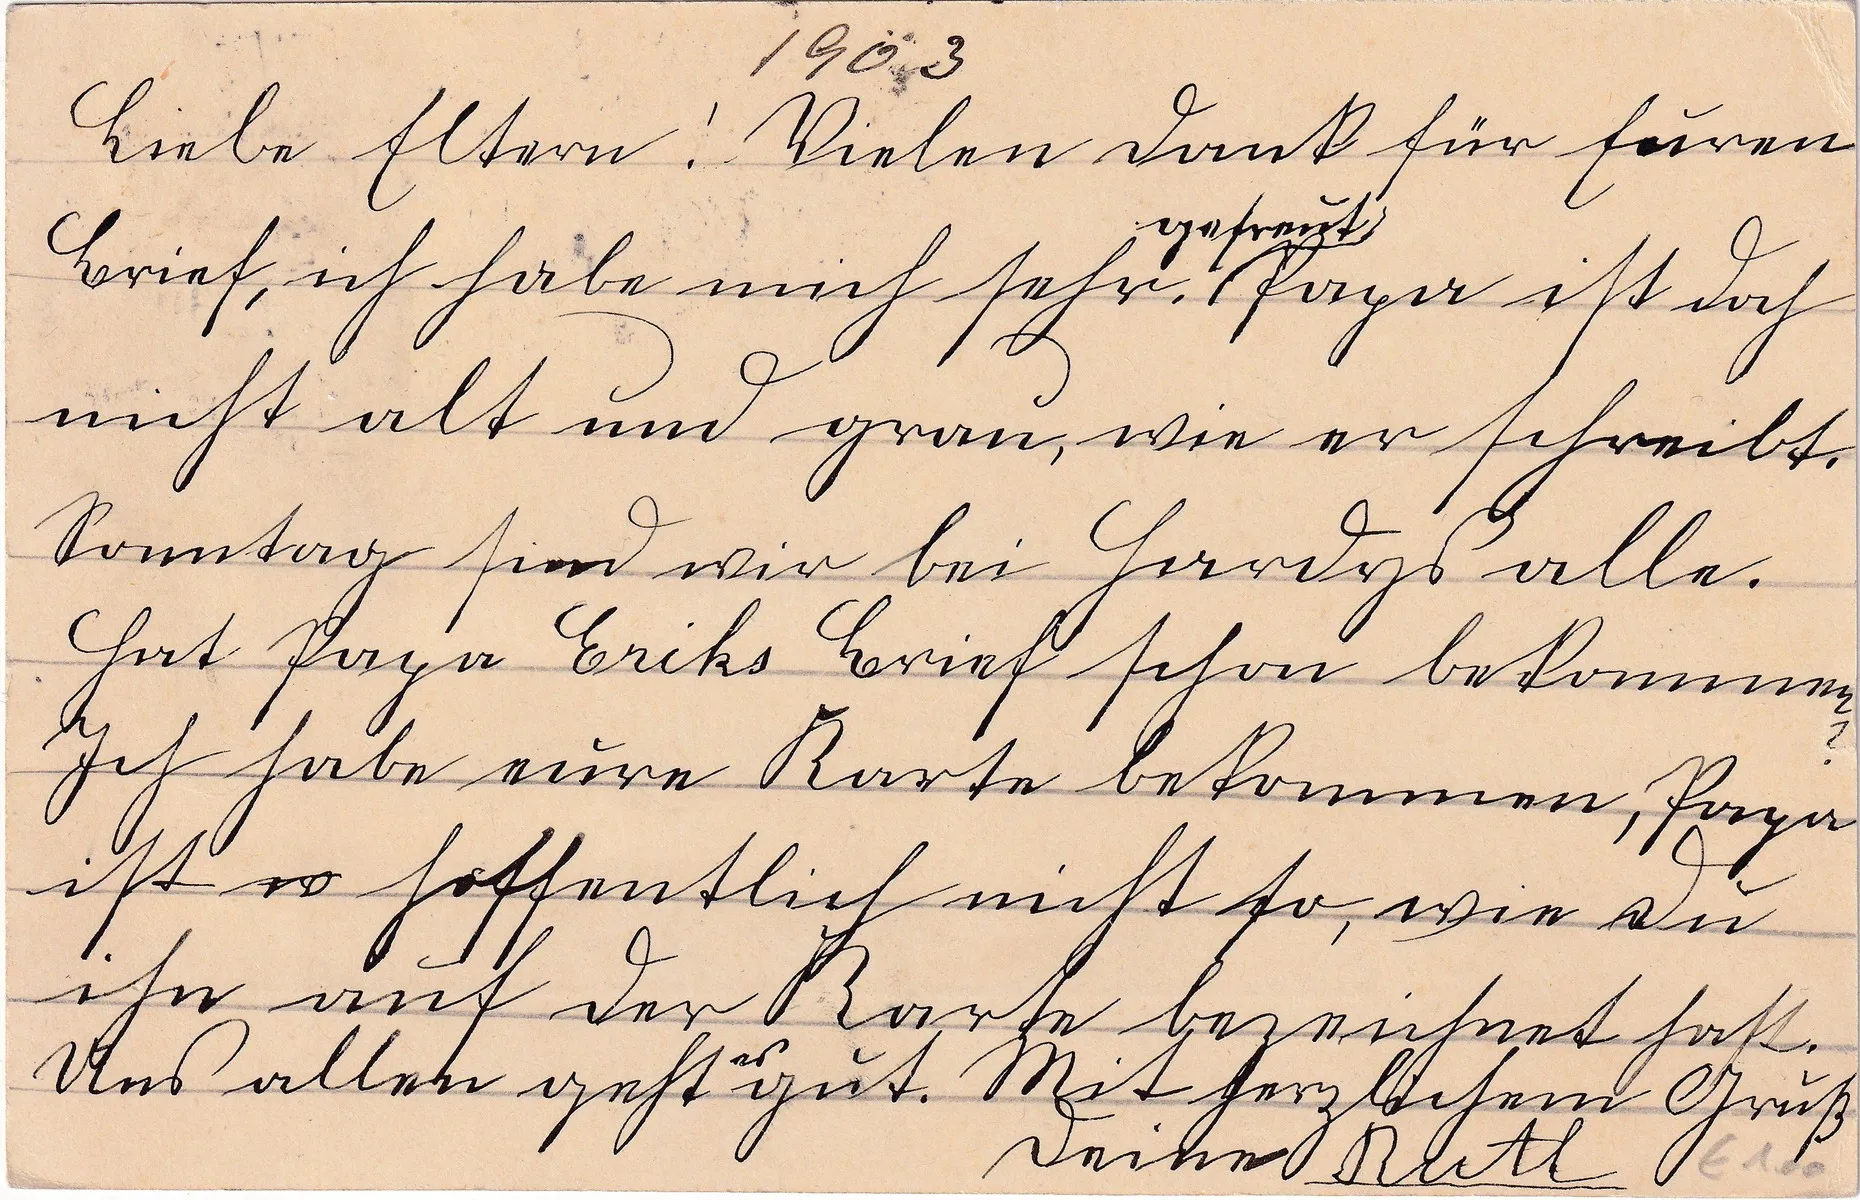 1903
Liebe Eltern! Vielen Dank für Euren
gefreut
Brief, ich habe mich sehr. Papa ist doch
nicht alt und grau, wie er schreibt.
Sonntag sind wir bei Hardys alle.
Hat Papa Eriks Brief schon bekommen?
Ich habe eure Karte bekommen, Papa
ist hoffentlich nicht so, wie Du
ihn auf der Karte bezeichnet hast.
Uns allen geht es gut. Mit herzlichem Gruß
Deine Ruth
€ 1.00